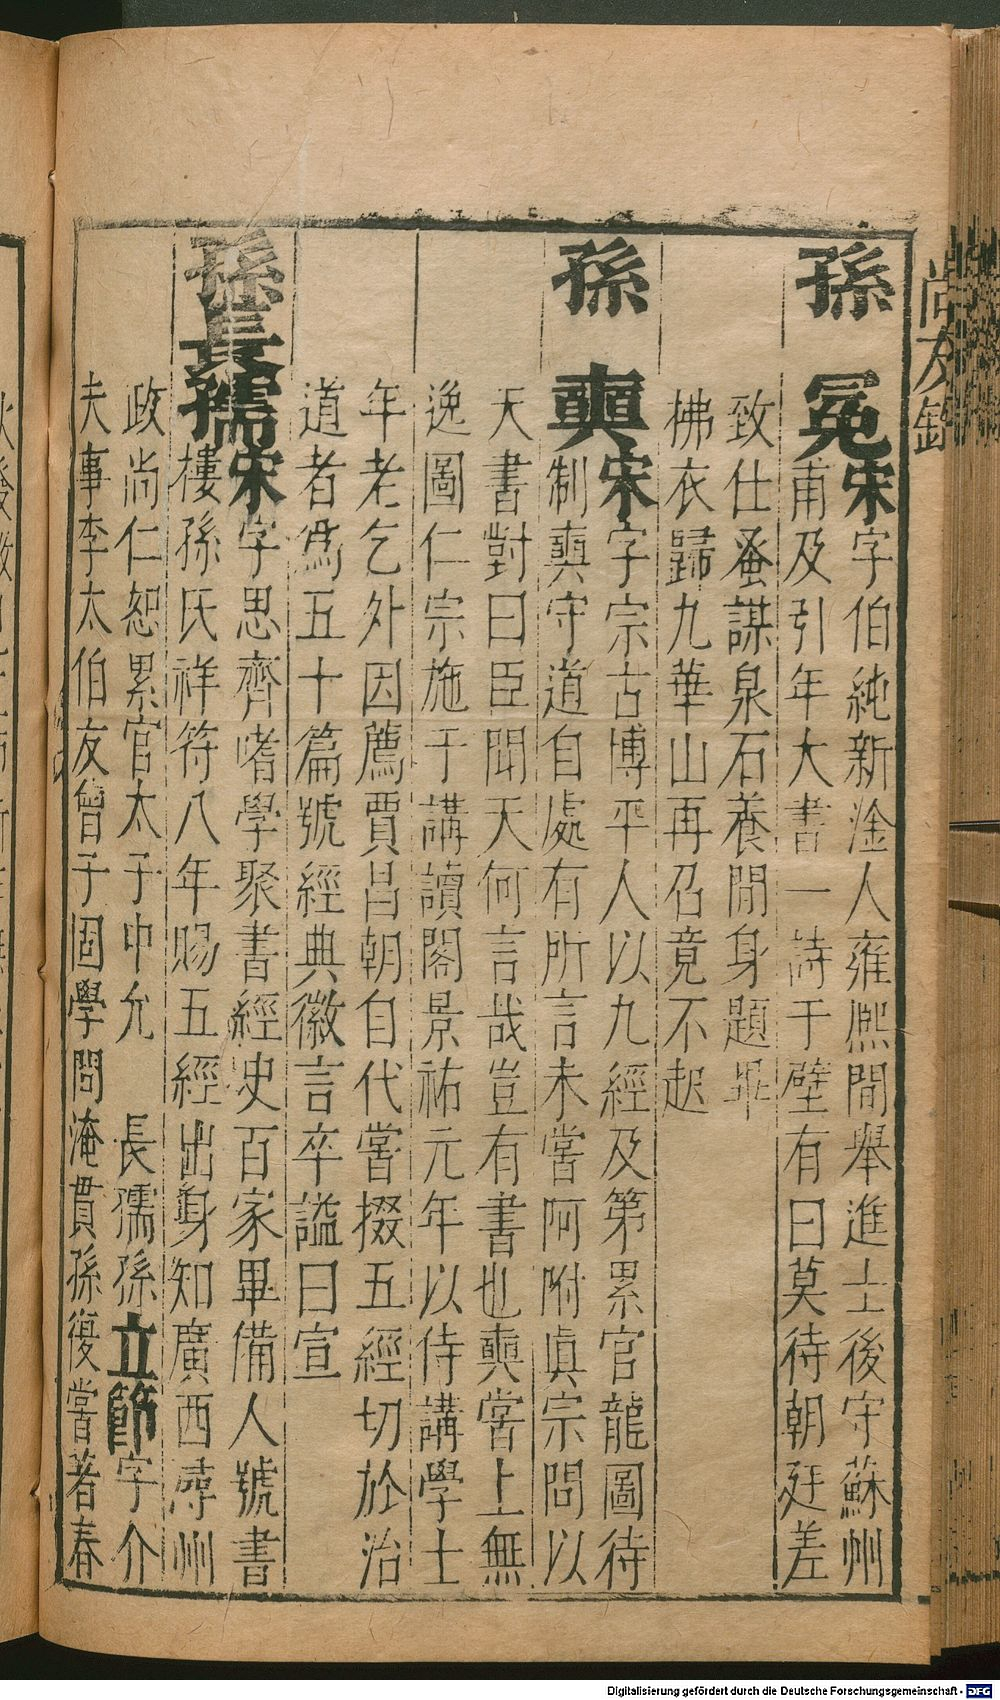 尚友錄
孫冕宋字伯純新淦人雍熙間舉進士後守蘇州
甫及引年大書一詩于壁有曰莫待朝廷差
致仕蚤謀泉石養閒身題畢
拂衣歸九華山再召竟不起
孫奭宋字宗古博平人以九經及第累官龍圖待
制奭守道自處有所言未嘗阿附眞宗問以
天書對曰臣聞天何言哉豈有書也奭嘗上無
逸圖仁宗施于講讀閣景祐元年以侍講學士
年老乞外因薦賈昌朝自代嘗掇五經切於治
道者爲五十篇號經典徽言卒謚曰宣
孫長孺宋字思齊嗜學聚書經史百家畢備人號書
樓孫氏祥符八年賜五經出身知廣西潯州
政尚仁恕累官太子中允 長孺孫立節字介
夫事李太伯友曾子固學問淹貫孫復嘗著春
Digitalisierung gefördert durch die Deutsche Forschungsgemeinschaft - DFG